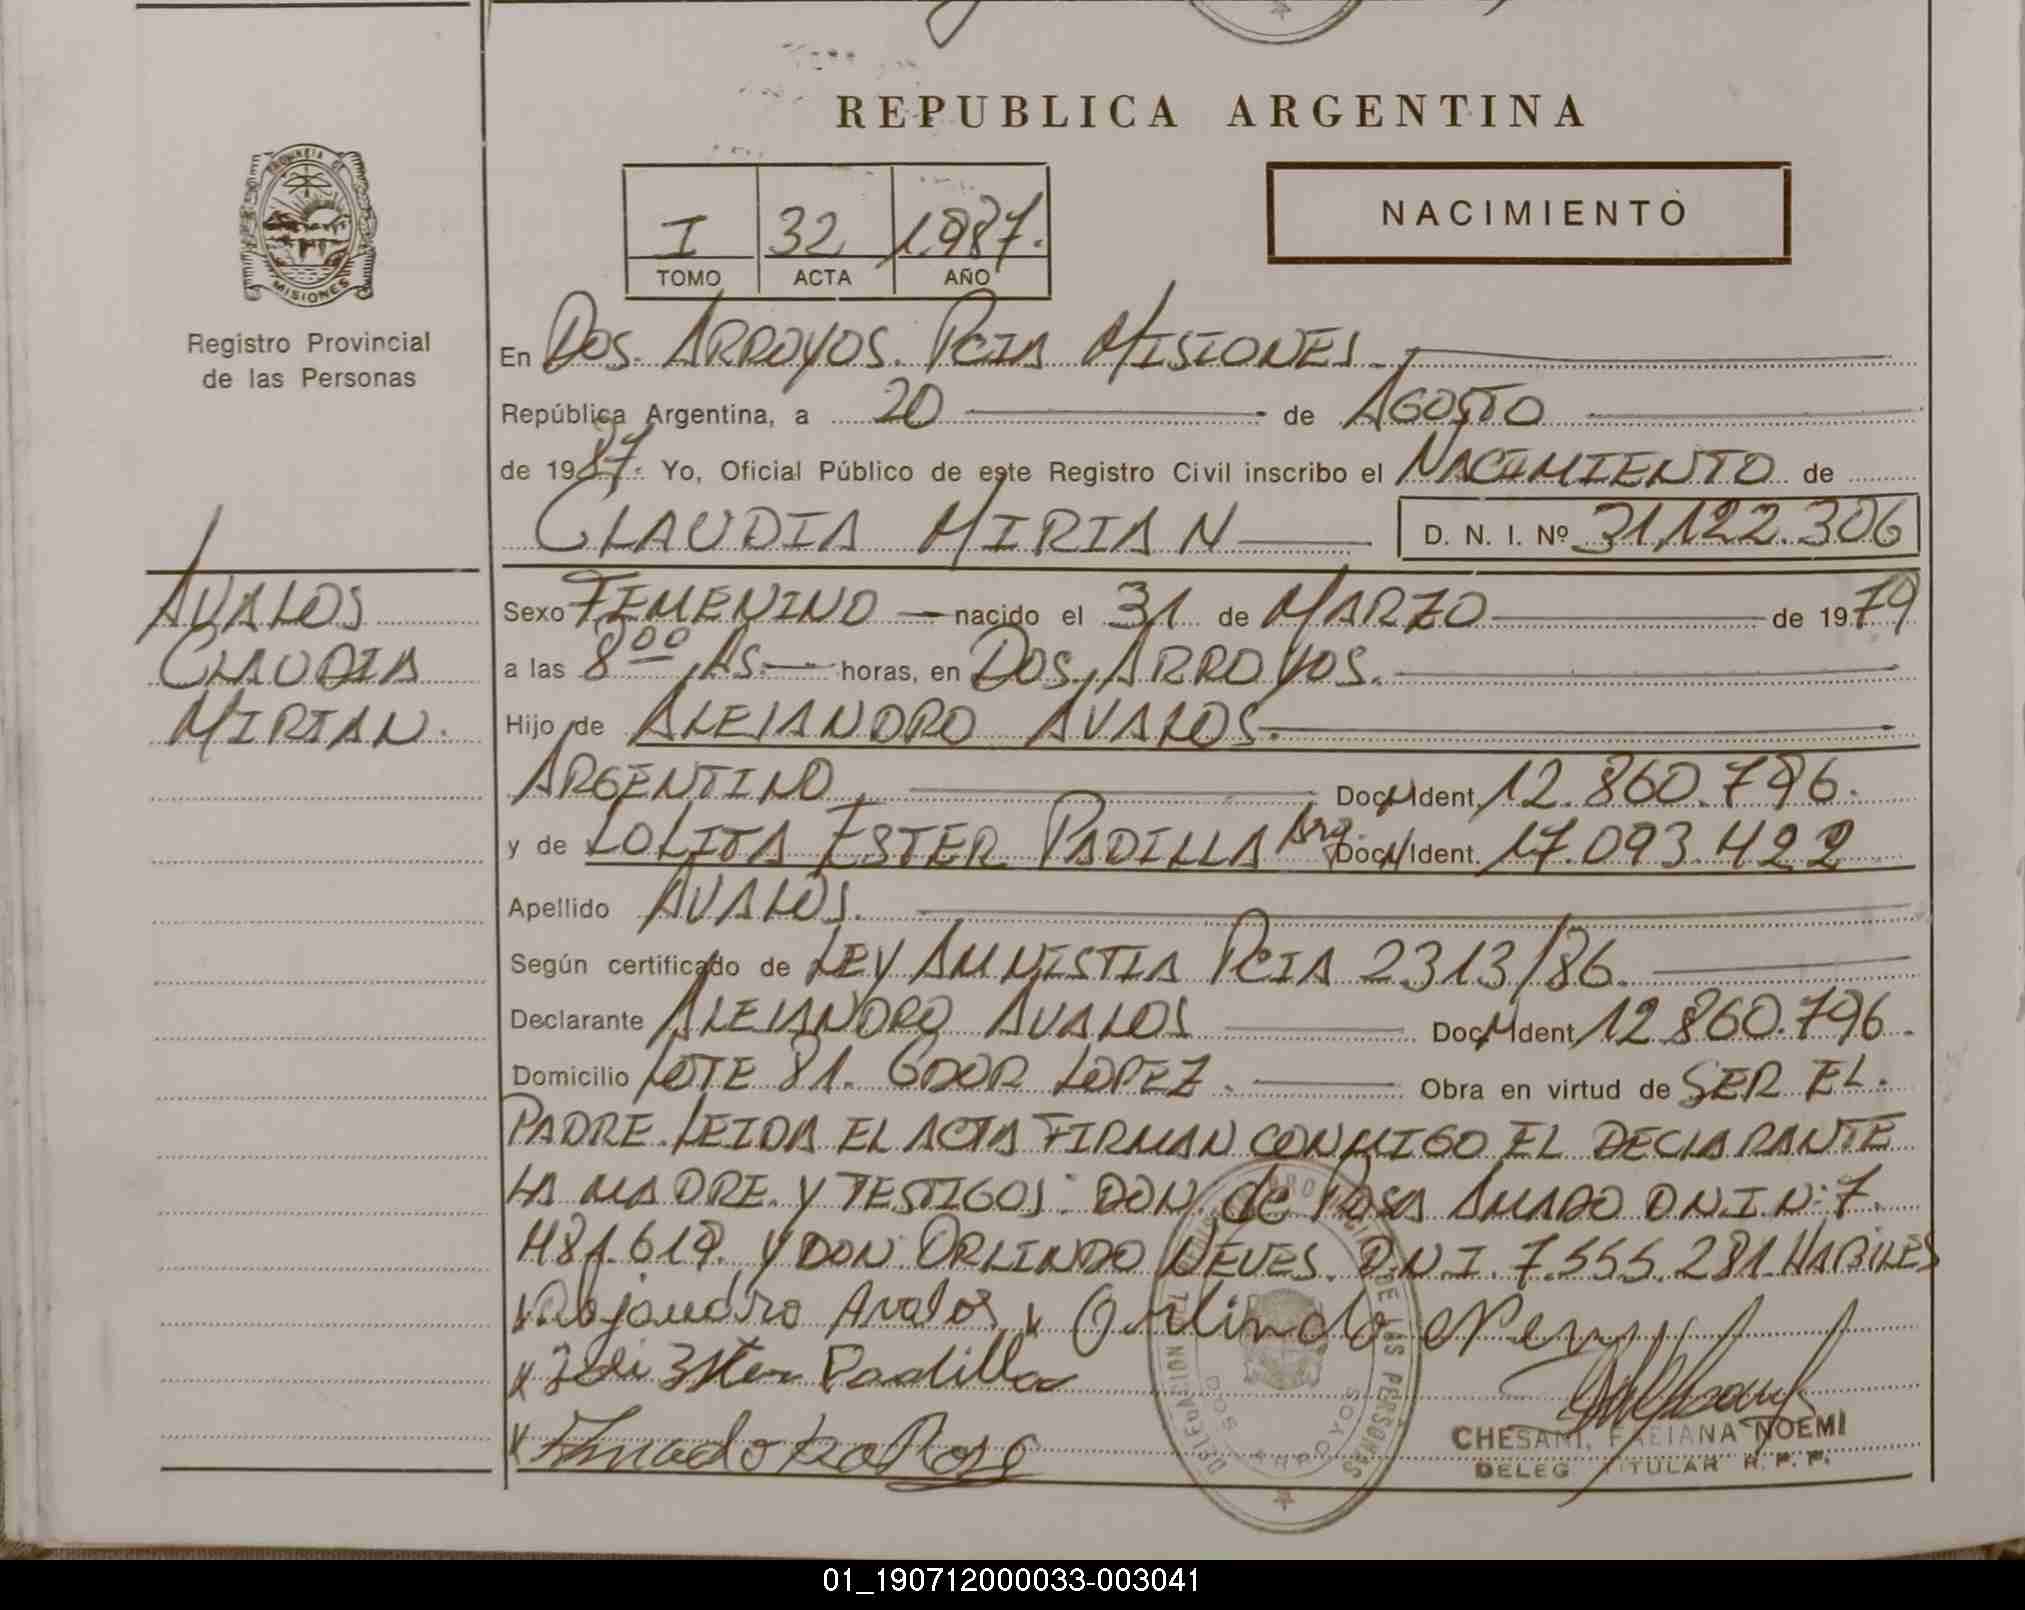 REPUBLICA ARGENTINA
PROVINCIA DE
MISIONES
Registro Provincial
de las Personas
I 32 1987.
TOMO ACTA AÑO
NACIMIENTO
En DOS ARROYOS. PCIA MISIONES.
República Argentina, a 20 de AGOSTO
de 1987. Yo, Oficial Público de este Registro Civil inscribo el NACIMIENTO de
CLAUDIA MIRIAN D. N. I. Nº 31.122.306
AVALOS
CLAUDIA
MIRIAN.
Sexo FEMENINO nacido el 31 de MARZO de 1979
a las 8 00 HS. horas, en DOS ARROYOS.
Hijo de ALEJANDRO AVALOS.
ARGENTINO Doc. Ident. 12.860.796.
y de LOLITA ESTER PADILLA Arg. Doc. Ident. 17.093.422
Apellido AVALOS.
Según certificado de LEY AMNISTIA PCIA 2313/86.
Declarante ALEJANDRO AVALOS Doc. Ident. 12.860.796.
Domicilio LOTE 81. GDOR LOPEZ. Obra en virtud de SER EL
PADRE. LEIDA EL ACTA FIRMAN CONMIGO EL DECLARANTE
LA MADRE. Y TESTIGOS: DON de ROSA AMADO D.N.I.N: 7.
481.619. Y DON ORLINDO NEVES. D.N.I. 7.555.281. HABILES
x Alejandro Avalos x Orlindo Neves
x Ester Padilla
x Amado da Rosa
CHESANI, FABIANA NOEMI
DELEG TITULAR R. P. P.
DELEGACION DE LAS PERSONAS
DOS ARROYOS
01_190712000033-003041